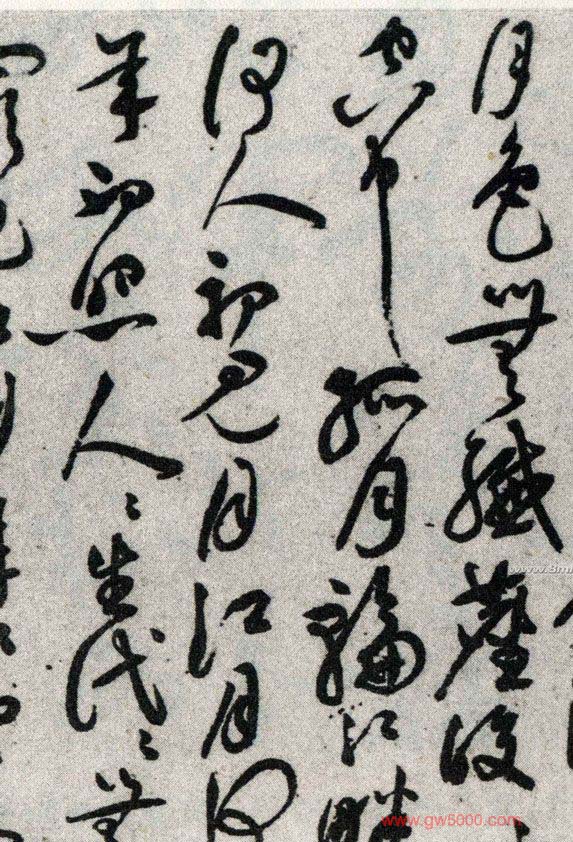 月色無纖塵皎
空中孤月輪江畔
何人初見月江月何
年初照人〻生代〻無
www.gw5000.com